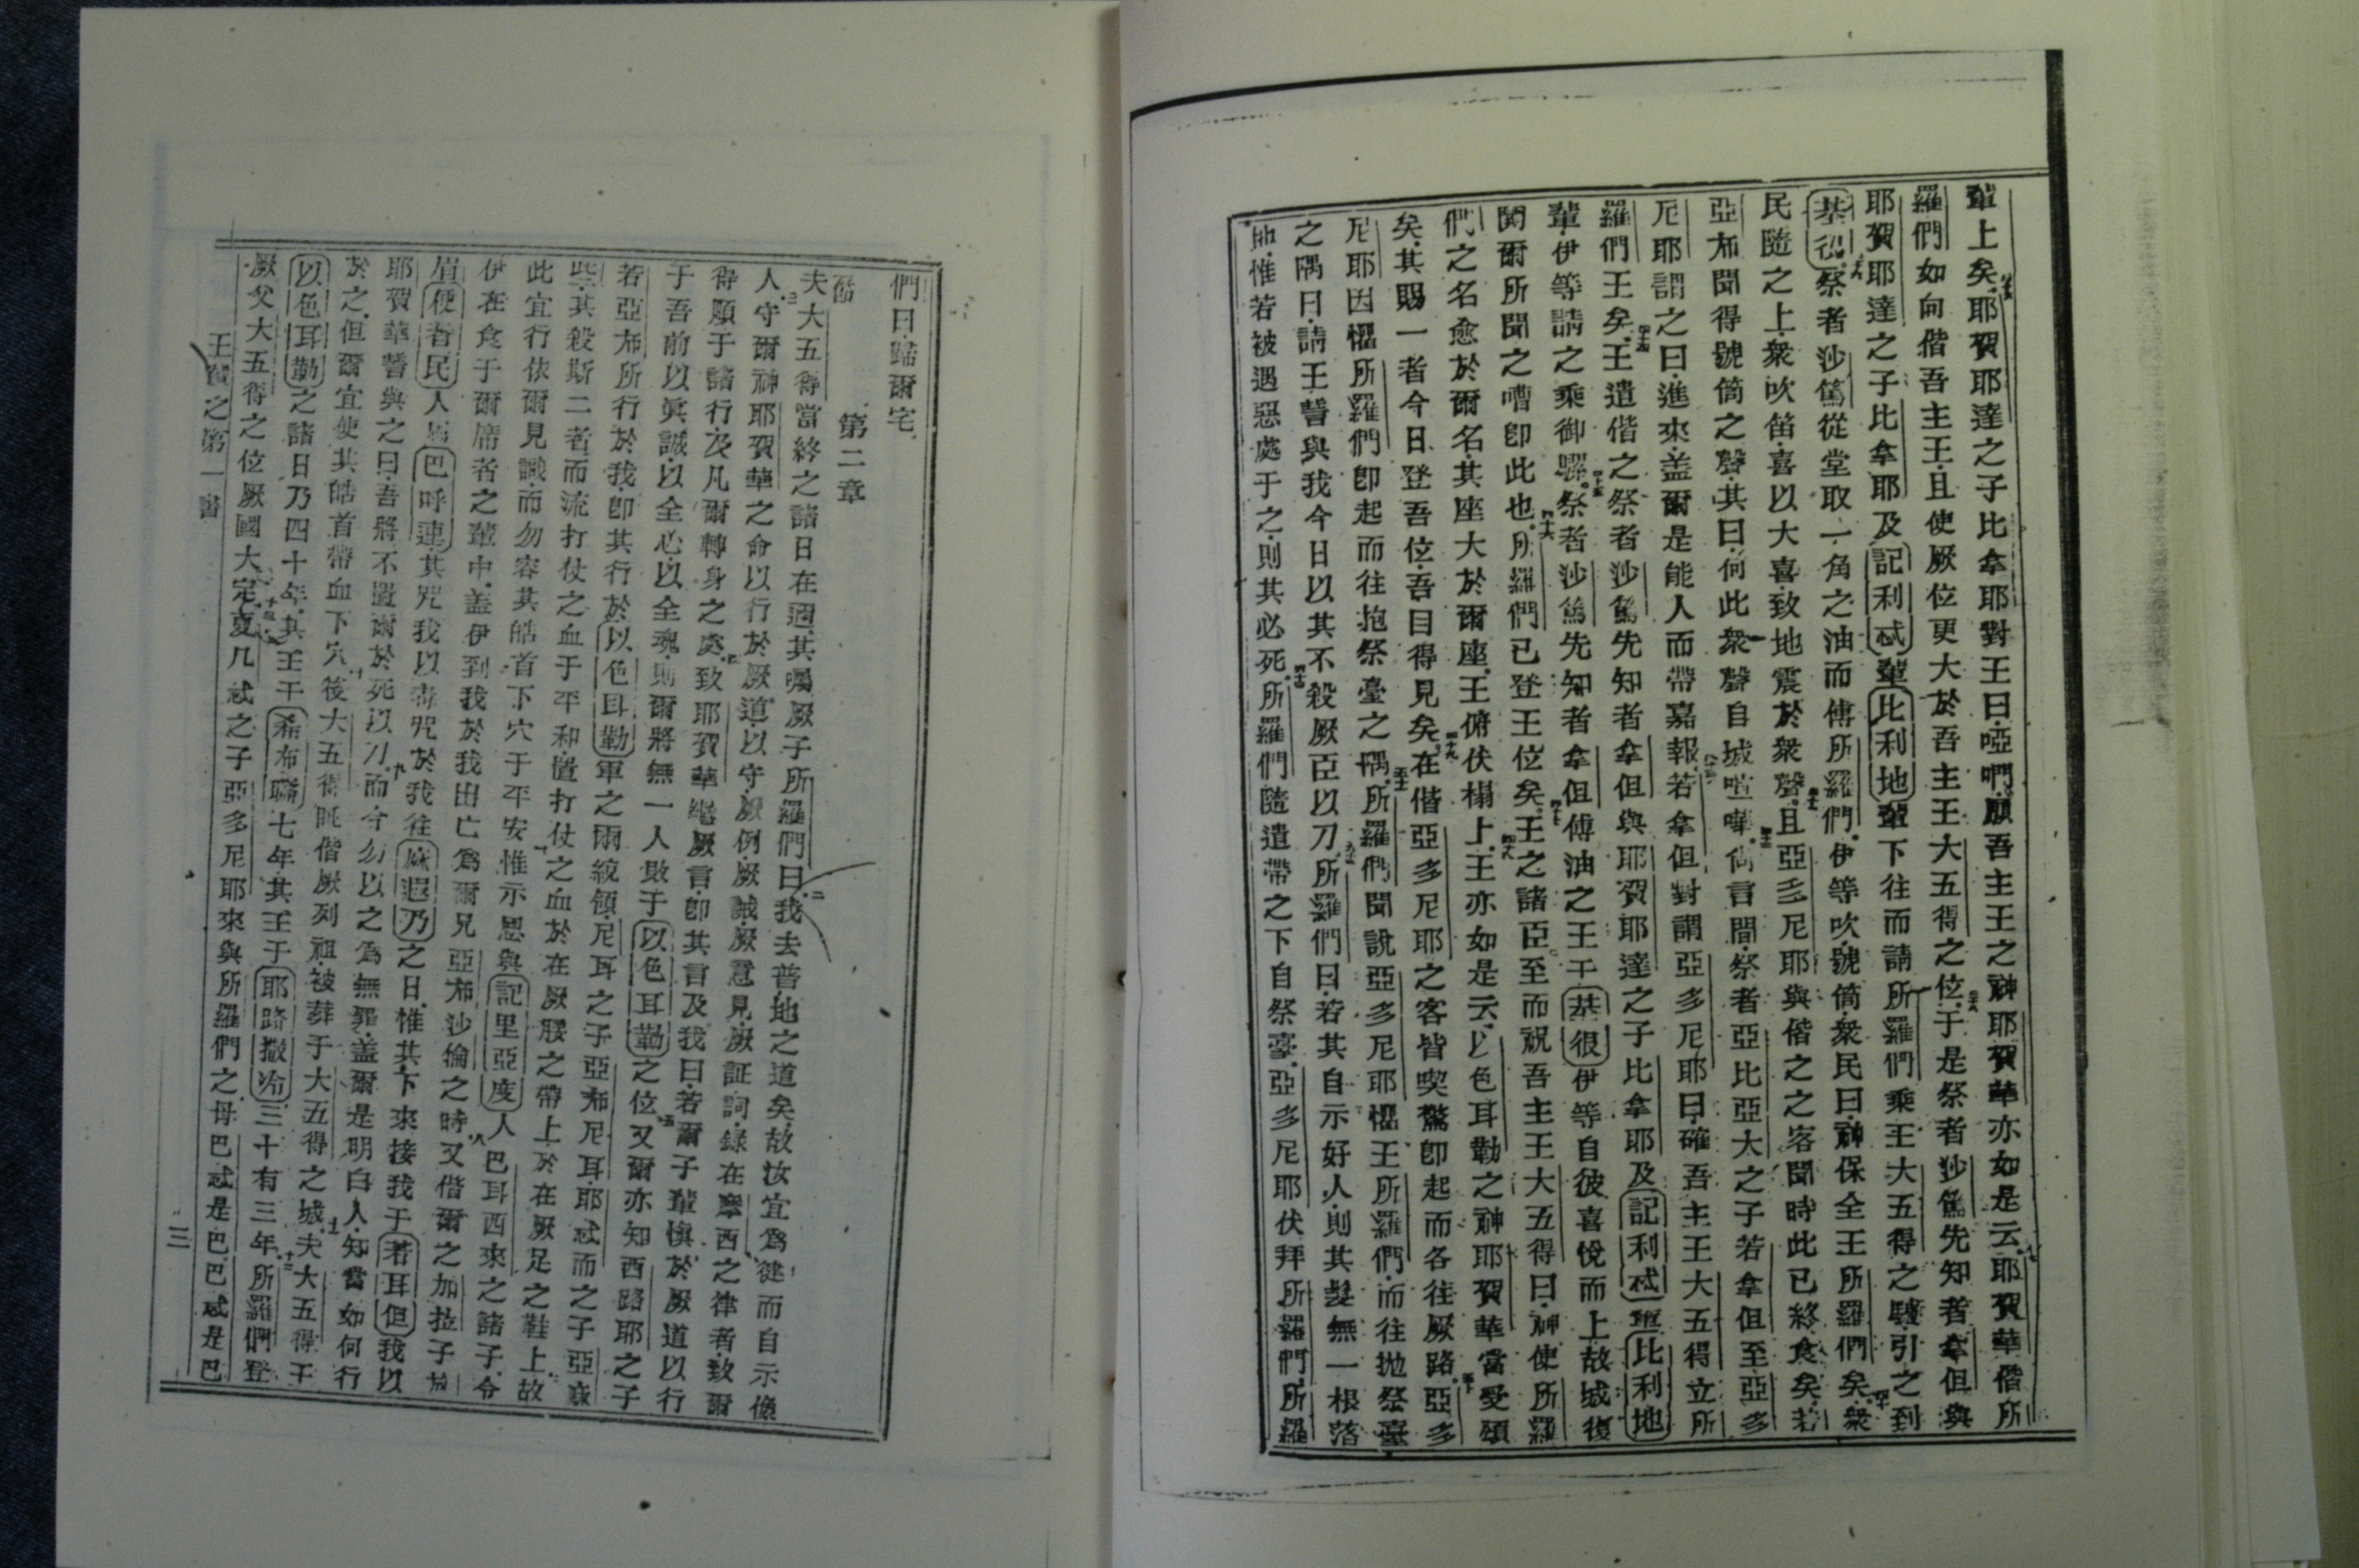 輩上矣耶賀耶達之子比拿耶對王曰啞們願吾主王之神耶賀華亦如是云耶賀華偕所
羅們如向偕吾主王且使厥位更大於吾主王大五得之位于是祭者沙篤先知者拿但與
耶賀耶達之子比拿耶及記利忒輩比利地輩下往而請所羅們乘王大五得之驢引之到
基很祭者沙篤從堂取一角之油而傅所羅們伊等吹號筒衆民曰神保全王所羅們矣衆
民隨之上衆吹笛喜以大喜致地震於衆聲且亞多尼耶與偕之之客聞時此已終食矣若
亞布聞得號筒之聲其曰何此衆聲自城喧嘩尚言間祭者亞比亞大之子若拿但至亞多
尼耶謂之曰進來盖爾是能人而帶嘉報若拿但對謂亞多尼耶曰確吾主王大五得立所
羅們王矣王遣偕之祭者沙篤先知者拿但與耶賀耶達之子比拿耶及記利忒輩比利地
輩伊等請之乘御騾祭者沙篤先知者拿但傅油之王于基很伊等自彼喜悅而上故城復
閧爾所聞之嘈卽此也所羅們已登王位矣王之諸臣至而祝吾主王大五得曰神使所羅
們之名愈於爾名其座大於爾座王俯伏榻上王亦如是云以色耳勒之神耶賀華當受頌
矣其賜一者今日登吾位吾目得見矣在偕亞多尼耶之客皆喫驚卽起而各往厥路亞多
尼耶因懼所羅們卽起而往抱祭臺之隅所羅們聞說亞多尼耶懼王所羅們而往抛祭臺
之隅曰請王誓與我今日以其不殺厥臣以刀所羅們曰若其自示好人則其髮無一根落
地惟若被遇惡處于之則其必死所羅們隨遣帶之下自祭臺亞多尼耶伏拜所羅們所羅
們曰歸爾宅
第二章
夫大五得當終之諸日在邇其囑厥子所羅們曰我去普地之道矣故汝宜爲健而自示像
人守爾神耶賀華之命以行於厥道以守厥例厥誡厥意見厥証詞錄在摩西之律者致爾
得順于諸行及凡爾轉身之處致耶賀華繼厥言卽其言及我曰若爾子輩愼於厥道以行
于吾前以眞誠以全心以全魂則爾將無一人敗于以色耳勒之位又爾亦知西路耶之子
若亞布所行於我卽其行於以色耳勒軍之兩統領尼耳之子亞布尼耳耶忒而之子亞麻
些其殺斯二者而流打仗之血于平和置打仗之血於在厥腰之帶上於在厥足之鞋上故
此宜行依爾見識而勿容其皓首下穴于平安惟示恩與記里亞度人巴耳西來之諸子令
伊在食于爾席者之輩中盖伊到我於我出亡爲爾兄亞布沙倫之時又偕爾之加拉子
眉便者民人巴呼連其咒我以毒咒於我往麻遐乃之日惟其下來接我于若耳但我以
耶賀華誓與之曰吾將不置爾於死以刀而今勿以之爲無罪盖爾是明白人知當如何行
於之但爾宜使其皓首帶血下穴後大五得眠偕厥列祖被葬于大五得之城夫大五得王
以色耳勒之諸日乃四十年其王于希布聯七年其王于耶路撒冷三十有三年所羅們登
厥父大五得之位厥國大定夏几忒之子亞多尼耶來與所羅們之母巴忒是巴巴忒是巴
王書之第一書
三